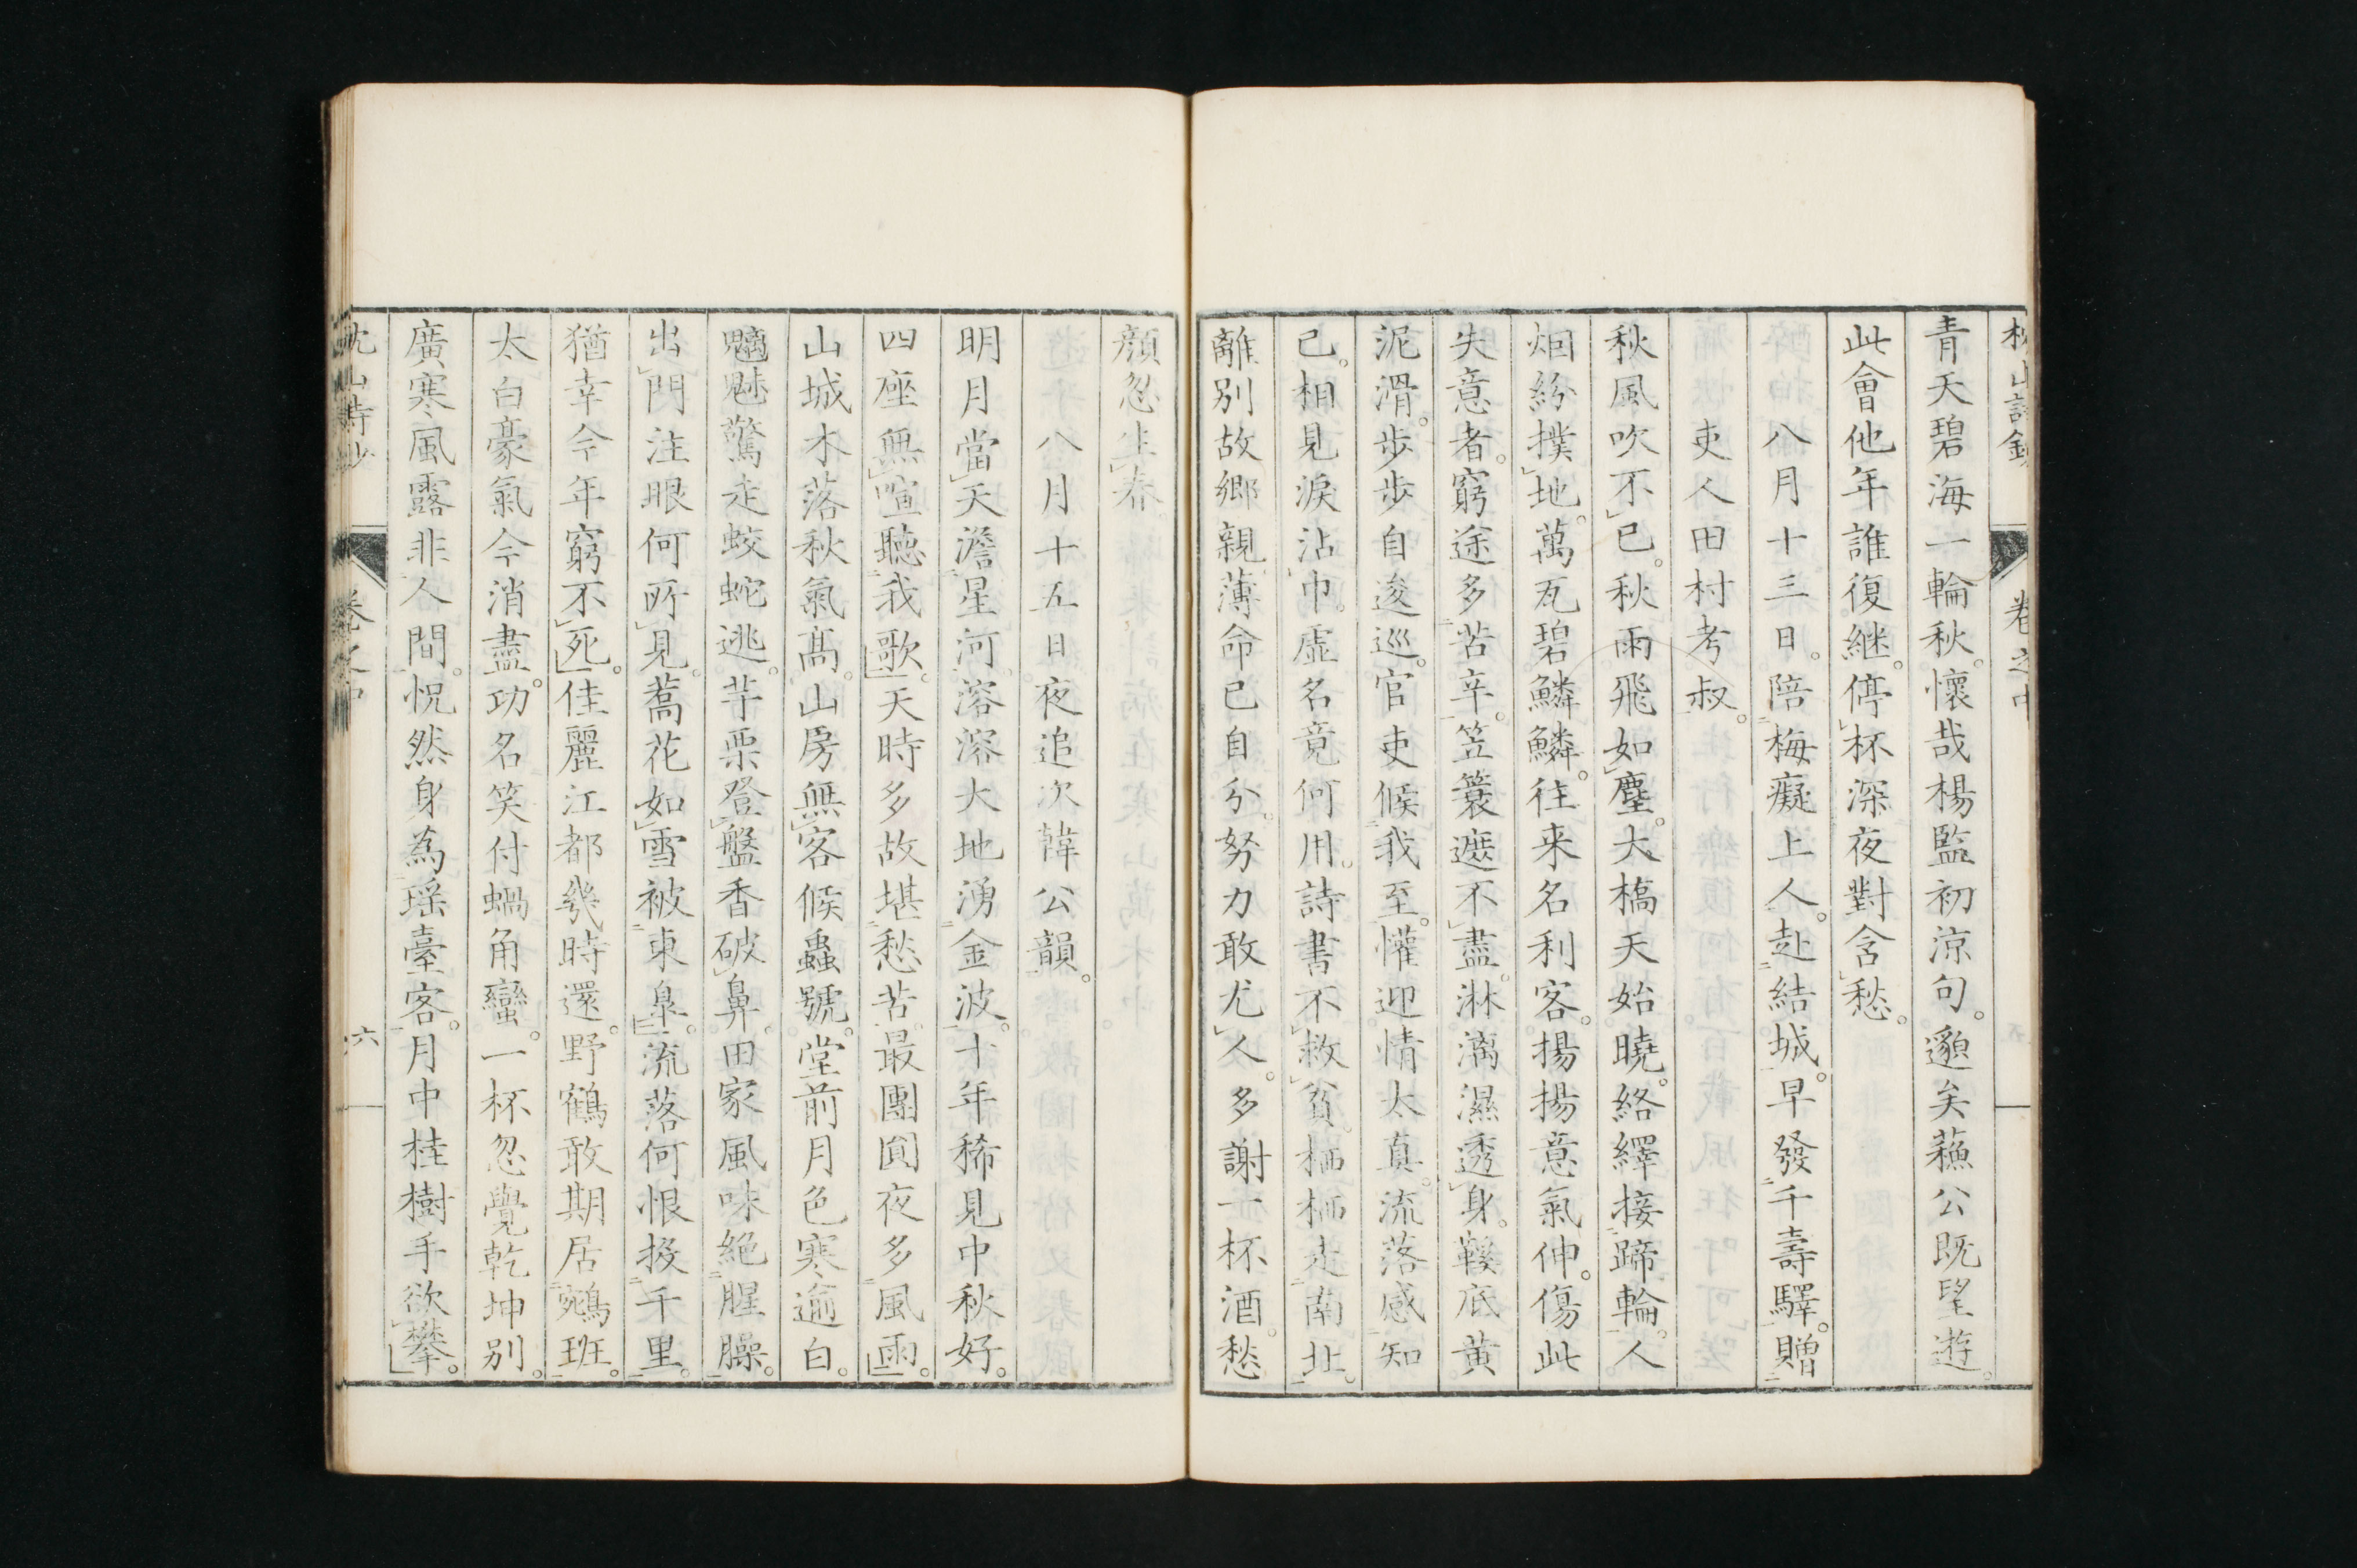 枕山詩鈔 卷之中
青天碧海一輪秋。懷哉楊監初涼句。邈矣蘓公既望遊。
此會他年誰復継。停杯深夜對含愁。
八月十三日。陪梅癡上人。赴結城。早發千壽驛。贈
吏人田村考叔。
秋風吹不已。秋雨飛如塵。大橋天始曉。絡繹接蹄輪。人
烟紛撲地。萬瓦碧鱗鱗。往来名利客。揚揚意氣伸。傷此
失意者。窮途多苦辛。笠簑遮不盡。淋漓濕透身。鞋底黄
泥滑。歩歩自逡巡。官吏候我至。懽迎情太真。流落感知
己。相見淚沾巾。虛名竟何用。詩書不救貧。栖栖走南北。
離別故鄉親。薄命已自分。努力敢尤人。多謝一杯酒。愁
顏忽生春。
八月十五日夜追次韓公韻。
明月當天澹星河。溶溶大地湧金波。十年稀見中秋好。
四座無喧聽我歌。天時多故堪愁苦。最團圓夜多風雨。
山城木落秋氣髙。山房無客候蟲號。堂前月色寒逾白。
魑魅驚走蛟蛇逃。芋栗登盤香破鼻。田家風味絶腥臊。
出門注眼何所見。蕎花如雪被東皐。流落何恨投千里。
猶幸今年窮不死。佳麗江都幾時還。野鶴敢期居鵷班。
太白豪氣今消盡。功名笑付蝸角蠻。一杯忽覺乾坤別。
廣寒風露非人間。怳然身為瑶臺客。月中桂樹手欲攀。
枕山詩鈔 卷之中 六